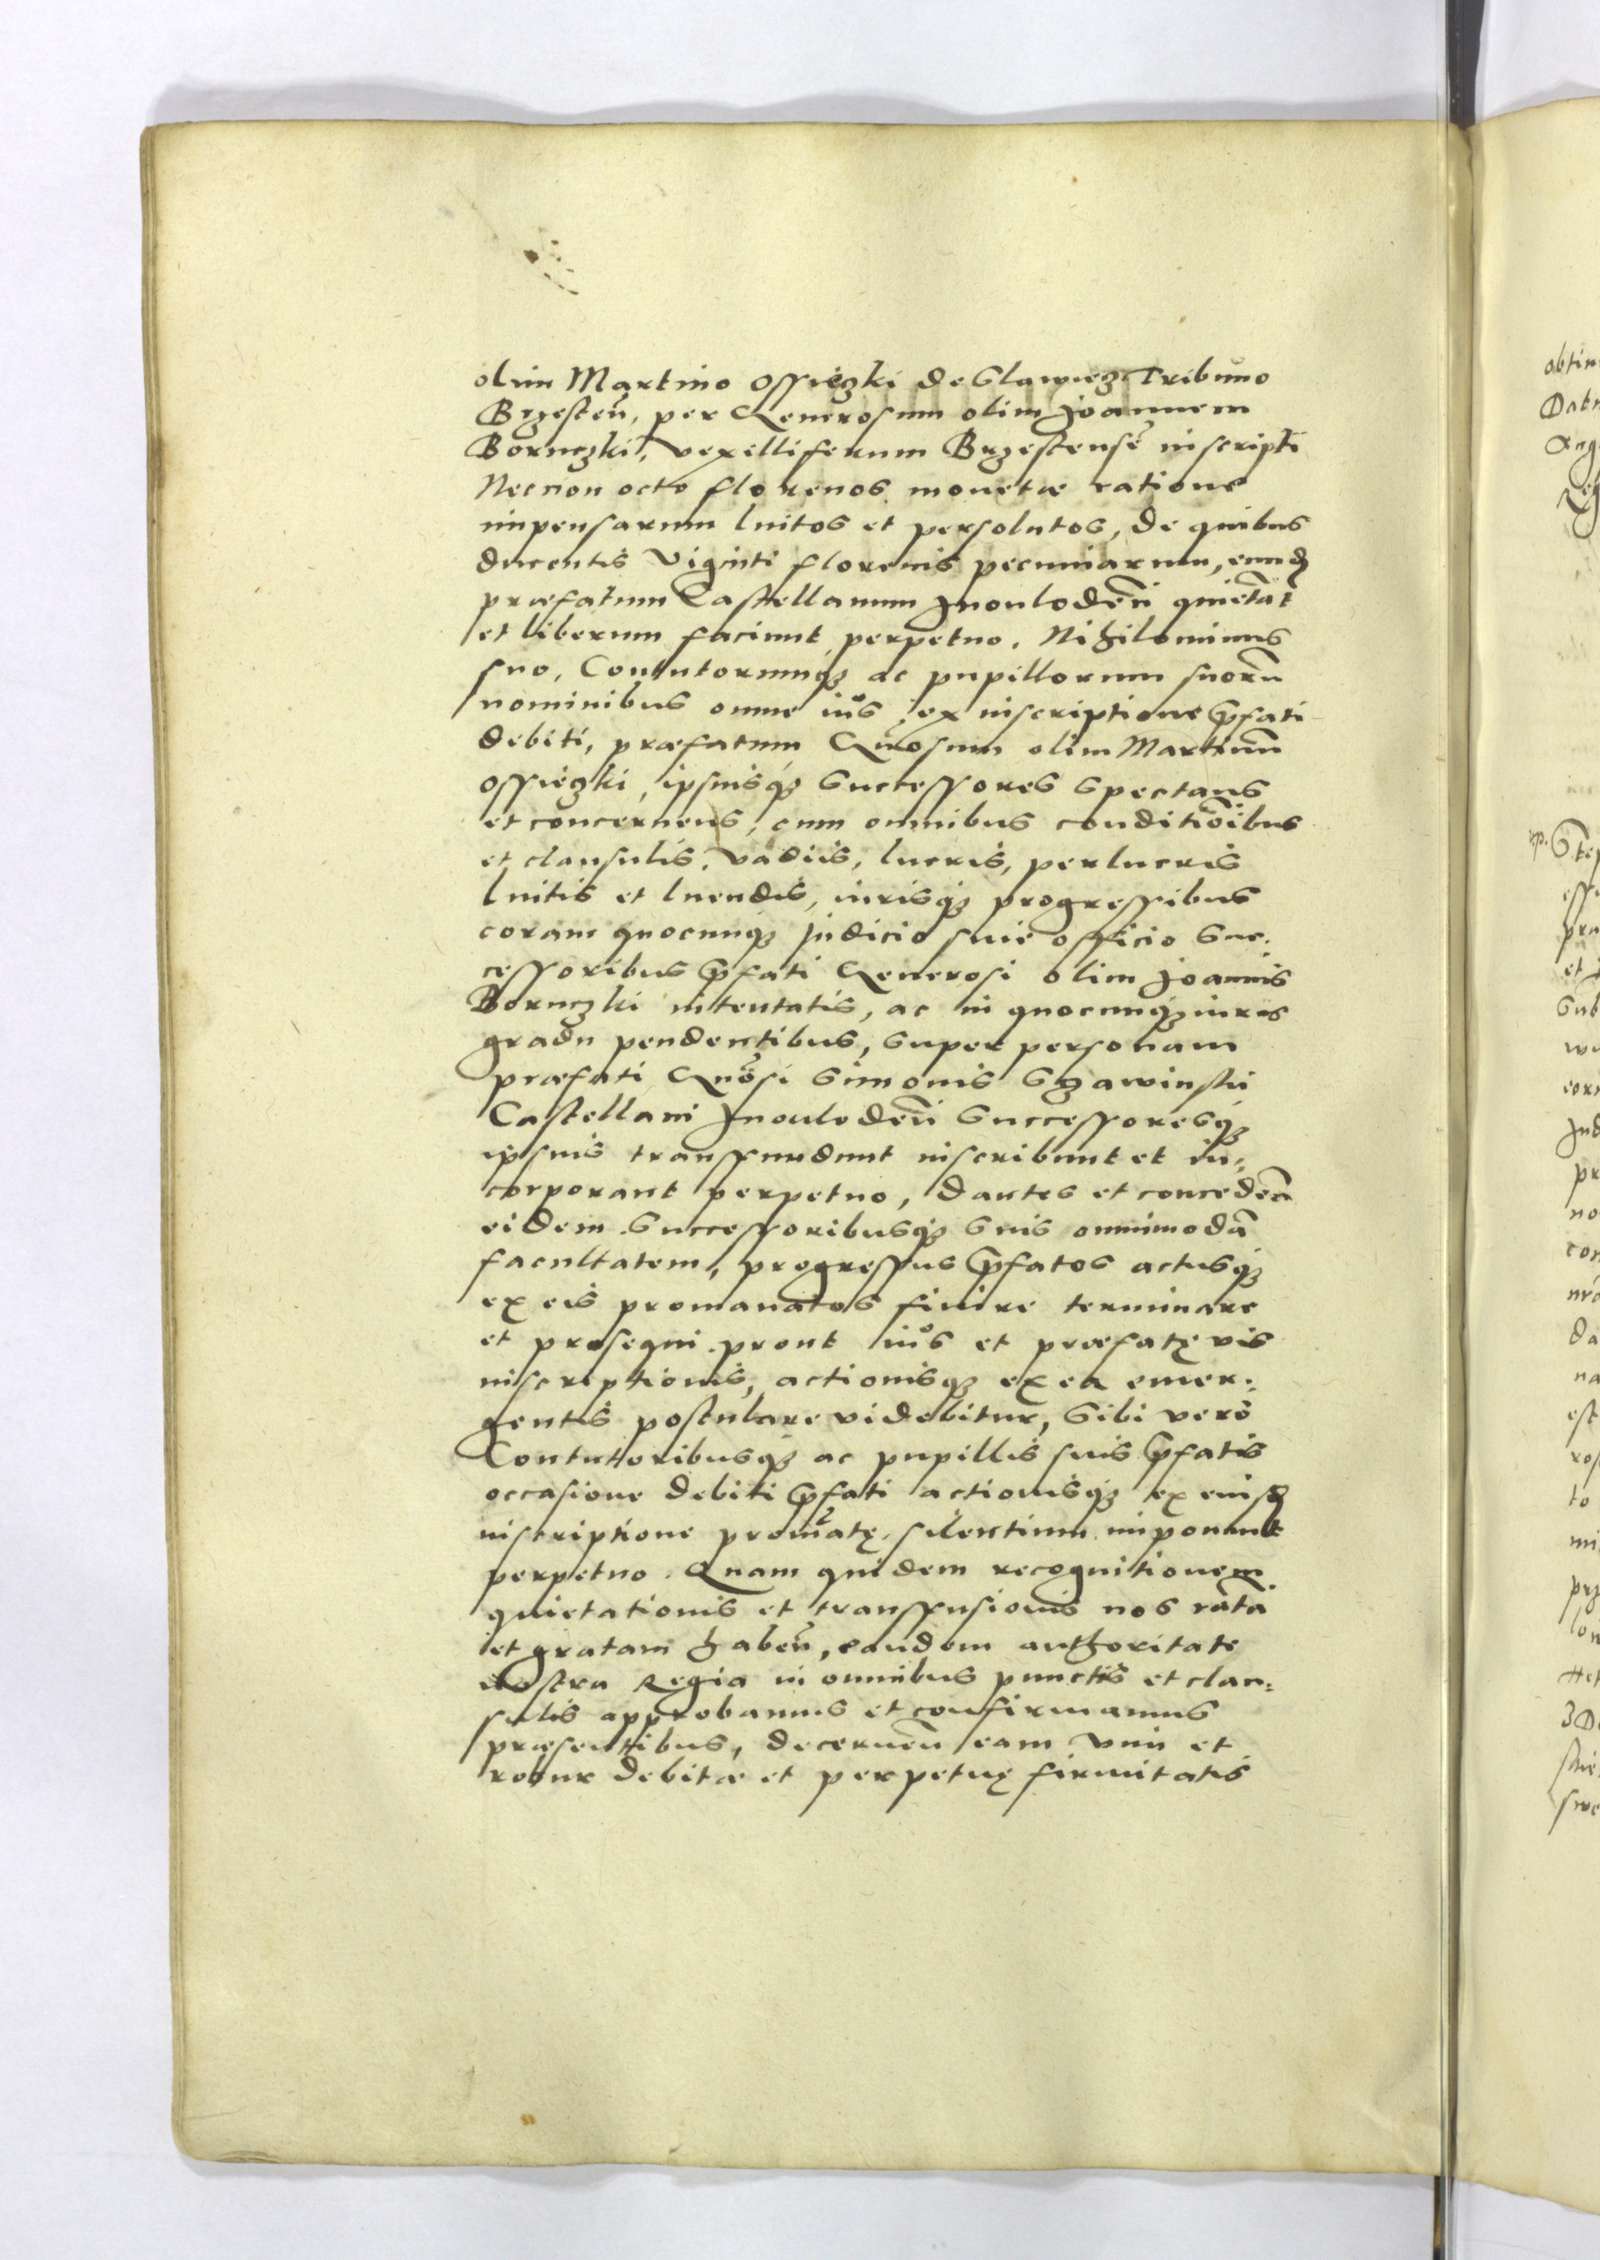 olim Martino Ossięzki de Glawiez Tribuno
Brzesteñ, per Generosum olim Joannem
Bornczki, vexilliferum Brzestensẽ inscripti
Necnon octo florenos monetæ ratione
impensarum luitos et persolutos, de quibus
ducentis viginti florenis pecuniarum, eund
præfatum Castellanum Jnoulodeñ quietãt
et liberum faciunt perpetuo. Nihilominus
suo, Contutorumq3 ac pupillorum suorũ
nominibus omne ius ex inscriptione p̃fati
debiti, præfatum Gñosum olim Martinũ
Ossięzki, ipsiusq3 successores spectans
et concernens, cum omnibus conditiõibus
et clausulis, vadiis, lucris, perlucris
luitis et luendis, iurisq3 progressibus
coram quocunq3 Judicio siuè officio suc:
cessoribus p̃fati Generosi olim Joannis
Bornczki intentatis, ac in quocunq3 iuris
gradu pendentibus, super personam
præfati Gñosi Simonis Szawinski
Castellani Jnoulodeñ successoresq3
ipsius transfundunt inscribunt et in:
corporant perpetuo, dantes et concedeñ
eidem successoribusq3 suis omnimodã
facultatem, progressus p̃fatos actusq3
ex eis promanatos finire terminare
et prosequi prout ius et præfatę vis
inscriptionis, actionisq3 ex ea emer:
gentis postulare videbitur, Sibi verò
Contutoribusq3 ac pupillis suis p̃fatis
occasione debiti p̃fati actionisq3 ex eiusd
inscriptione promãtę silentium imponunt
perpetuo. Quam quidem recognitionem
quietationis et transfusionis nos ratã
et gratam habeñ, eandem authoritate
nostra Regia in omnibus punctis et clau:
sulis approbamus et confirmamus
præsentibus, decerneñ eam vim et
robur debitæ et perpetuę firmitatis